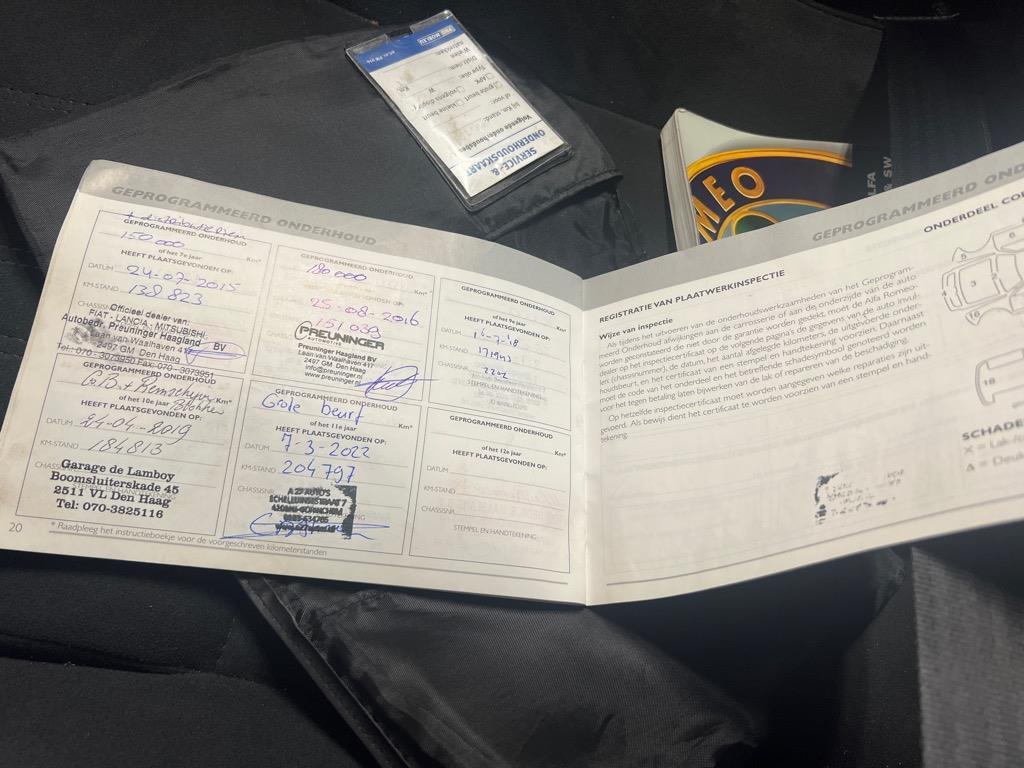 SERVICE- &
ONDERHOUDSKAART
Volgende onderhoudsbeurt
bij Km. stand:
of voor:
grote beurt kleine beurt
APK
Type olie:
Km
MEO
& SW
GEPROGRAMMEERD ONDERHOUD
+ distributieriem
GEPROGRAMMEERD ONDERHOUD
150 000 Km*
of het 7e jaar
HEEFT PLAATSGEVONDEN OP:
DATUM 24-07-2015
KM-STAND 138 823
CHASSISNR.
Officieel dealer van:
FIAT - LANCIA - MITSUBISHI
Autobedr. Preuninger Haagland BV
Laan van Waalhaven 417
2497 GM Den Haag
Tel.: 070 - 3073950 Fax: 070 - 3073951
180 000 Km*
25-08-2016
151 039
PREUNINGER
AUTOMOTIVE
Preuninger Haagland BV
Laan van Waalhaven 417
2497 GM Den Haag
info@preuninger.nl
www.preuninger.nl
GEPROGRAMMEERD ONDERHOUD
Km*
of het 9e jaar
HEEFT PLAATSGEVONDEN OP:
DATUM
KM-STAND 171943
CHASSISNR.
STEMPEL EN HANDTEKENING
GEPROGRAMMEERD ONDERHOUD
Km*
of het 10e jaar
HEEFT PLAATSGEVONDEN OP:
DATUM 24-04-2019
KM-STAND 184813
Garage de Lamboy
Boomsluiterskade 45
2511 VL Den Haag
Tel: 070-3825116
GEPROGRAMMEERD ONDERHOUD
Grote beurt Km*
of het 11e jaar
HEEFT PLAATSGEVONDEN OP:
DATUM 7-3-2022
KM-STAND 204797
CHASSISNR.
A 27 AUTO'S
SCHELLUINSESTRAAT 7
GORINCHEM
GEPROGRAMMEERD ONDERHOUD
Km*
of het 12e jaar
HEEFT PLAATSGEVONDEN OP:
DATUM
KM-STAND
CHASSISNR.
STEMPEL EN HANDTEKENING
20
* Raadpleeg het instructieboekje voor de voorgeschreven kilometerstanden
GEPROGRAMMEERD ONDERHOUD
ONDERDEEL
REGISTRATIE VAN PLAATWERKINSPECTIE
Wijze van inspectie
Als tijdens het uitvoeren van de onderhoudswerkzaamheden van het Geprogram-
meerd Onderhoud afwijkingen aan de carrosserie of aan de onderzijde van de auto
worden geconstateerd die niet door de garantie worden gedekt, moet de Alfa Romeo-
dealer op het inspectiecertificaat op de volgende pagina's de gegevens van de auto invul-
len (chassisnummer), de datum, het aantal afgelegde kilometers, de uitgevoerde onder-
houdsbeurt, en het certificaat van een stempel en handtekening voorzien. Daarnaast
moet de code van het onderdeel en het betreffende schadesymbool genoteerd worden
voor het tegen betaling laten bijwerken van de lak of repareren van de beschadiging.
Op hetzelfde inspectiecertificaat moet worden aangegeven welke reparaties zijn uit-
gevoerd. Als bewijs dient het certificaat te worden voorzien van een stempel en hand-
tekening.
5
6
2
3
16
18
SCHADE
X = Lak
Δ = Deuk